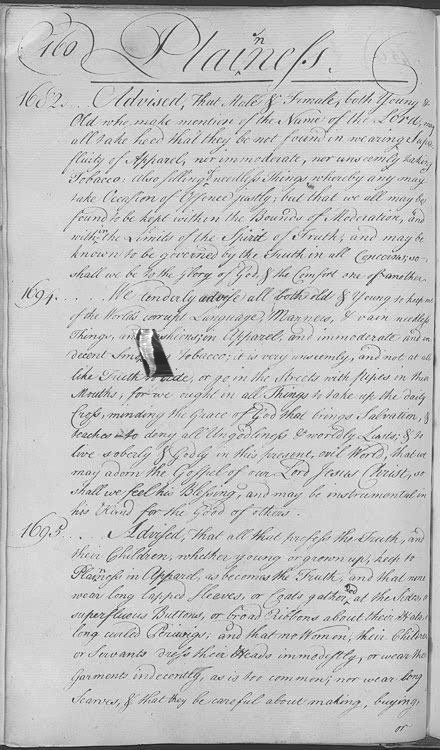 160 Plainness.
1682... Advised, That Male & Female, both Young &
Old who make mention of the Name of the Lord, may
all take heed that they be not found in wearing Super-
fluity of Apparel, nor immoderate, nor unseemly taking
Tobacco: Also selling needless Things whereby any may
take Occasion of Offence justly; but that we all may be
found to be kept within the Bounds of Moderation, and
within the Limits of the Spirit of Truth, and may be
known to be governed by the Truth in all Concerns, so
shall we be to the Glory of God, & the Comfort one of another.
1694..... We tenderly advise all both old & Young to keep out
of the World's corrupt Language, Manners, & vain needless
Things, and Fashions, in Apparel; and immoderate and in-
decent Tobacco; it is very unseemly, and not at all
like Truth to, or go in the Streets with pipes in their
Mouths, for we ought in all Things to take up the daily
Cross, minding the Grace of God that brings Salvation, &
teaches to deny all Ungodliness & worldly Lusts, & to
live soberly & Godly in this present, evil World, that we
may adorn the Gospel of our Lord Jesus Christ, so
shall we feel his Blessing, and may be instrumental in
his Hand for the Good of others.
1695... Advised, That all that profess the Truth, and
their Children, whether young or grown up, keep to
Plainness in Apparel, as becomes the Truth, and that none
wear long lapped Sleeves, or Coats gathered at the Sides, or
superfluous Buttons, or broad Ribbons about their Hats, or
long curled Periwigs; and that no Women, their Children
or Servants dress their Heads immodestly, or wear their
Garments indecently, as is too common; nor wear long
Scarves, & that they be careful about making, buying,
or